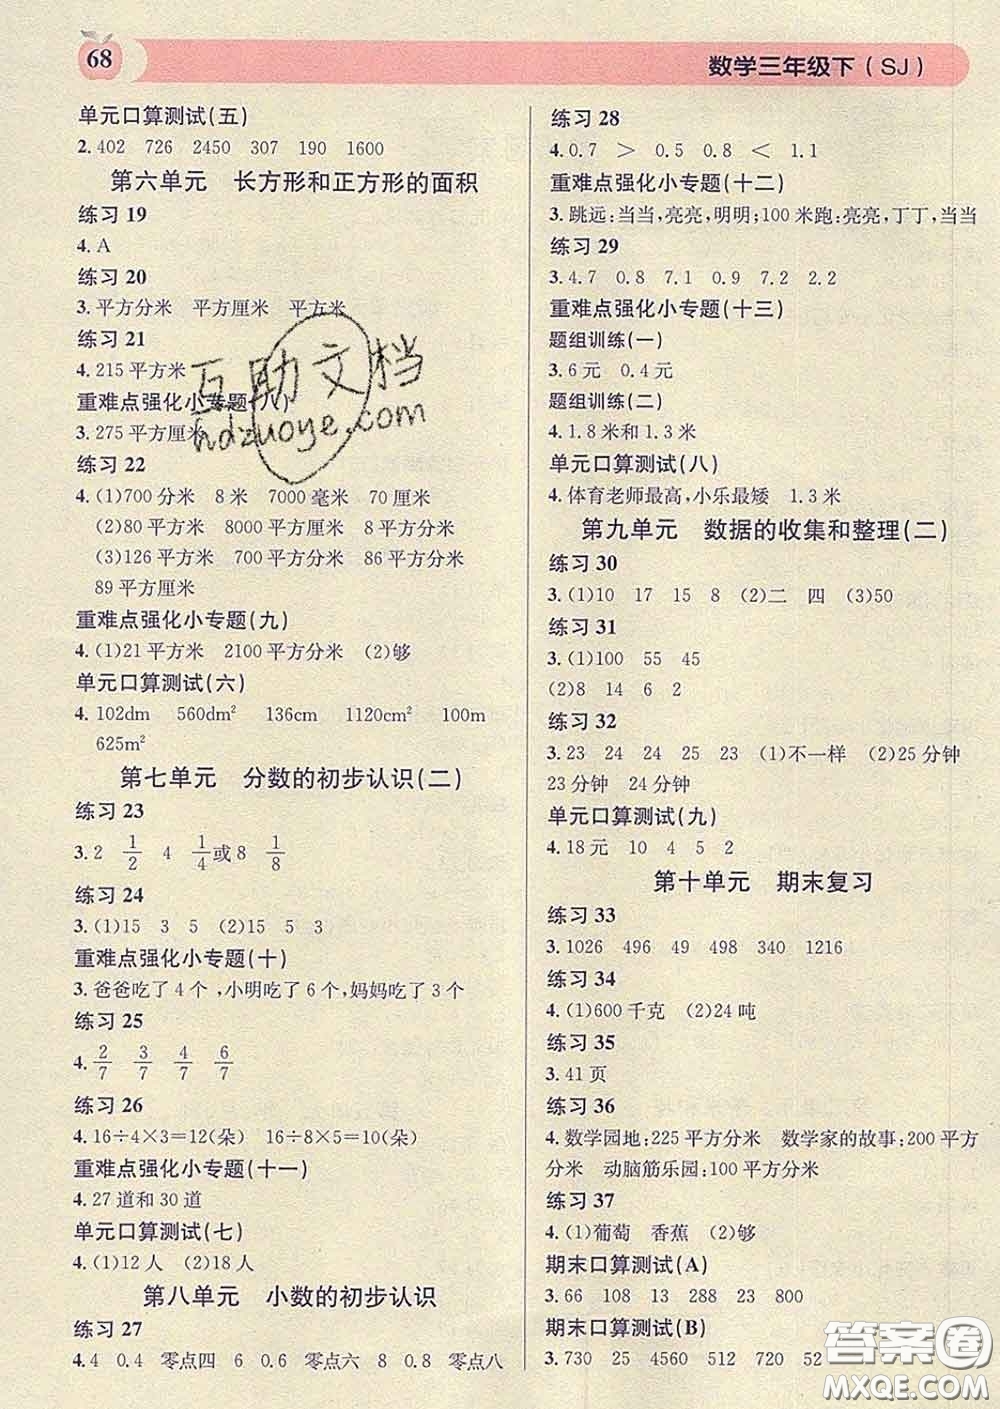 68
数学三年级下（SJ）
单元口算测试(五)
2. 402 726 2450 307 190 1600
第六单元 长方形和正方形的面积
练习 19
4. A
练习 20
3. 平方分米 平方厘米 平方米
练习 21
4. 215 平方米
重难点强化小专题(八)
3. 275 平方厘米
练习 22
4. (1)700 分米 8 米 7000 毫米 70 厘米
(2)80 平方米 8000 平方厘米 8 平方分米
(3)126 平方米 750 平方分米 86 平方米
89 平方厘米
重难点强化小专题(九)
4. (1)21 平方米 2100 平方分米 (2)够
单元口算测试(六)
4. 102dm 560dm² 136cm 1120cm² 100m
625m²
第七单元 分数的初步认识(二)
练习 23
3. 2 1/2 4 1/4或 8 1/8
练习 24
3. (1)15 3 5 (2)15 5 3
重难点强化小专题(十)
3. 爸爸吃了 4 个,小明吃了 6 个,妈妈吃了 3 个
练习 25
4. 2/7 3/7 4/7 6/7
练习 26
4. 16÷4×3=12(朵) 16÷8×3=6(朵)
重难点强化小专题(十一)
4. 27 道和 30 道
单元口算测试(七)
4. (1)12 人 (2)18 人
第八单元 小数的初步认识
练习 27
4. 4 0.4 零点四 6 0.6 零点六 8 0.8 零点八
练习 28
4. 0.7 > 0.5 0.8 < 1.1
重难点强化小专题(十二)
3. 跳远:当当,亮亮,明明;100 米跑:亮亮,丁丁,当当
练习 29
3. 4.7 0.8 7.1 0.9 7.2 2.2
重难点强化小专题(十三)
题组训练(一)
3. 6 元 0.4 元
题组训练(二)
4. 1.8 米和 1.3 米
单元口算测试(八)
4. 体育老师最高,小乐最矮 1.3 米
第九单元 数据的收集和整理(二)
练习 30
3. (1)10 17 15 8 (2)二 四 (3)50
练习 31
3. (1)100 55 45
(2)8 14 6 2
练习 32
3. 23 24 24 25 23 (1)不一样 (2)25 分钟
23 分钟 24 分钟
单元口算测试(九)
4. 18 元 10 4 5 2
第十单元 期末复习
练习 33
3. 1026 496 49 498 340 1216
练习 34
4. (1)600 千克 (2)24 吨
练习 35
3. 41 页
练习 36
4. 数学园地:225 平方分米 数学家的故事:200 平方
分米 动脑筋乐园:100 平方分米
练习 37
4. (1)葡萄 香蕉 (2)够
期末口算测试(A)
3. 66 108 13 288 23 800
期末口算测试(B)
3. 730 25 4560 512 720 52
互助文档
hdzuoye.com
答案圈
MXQE.COM